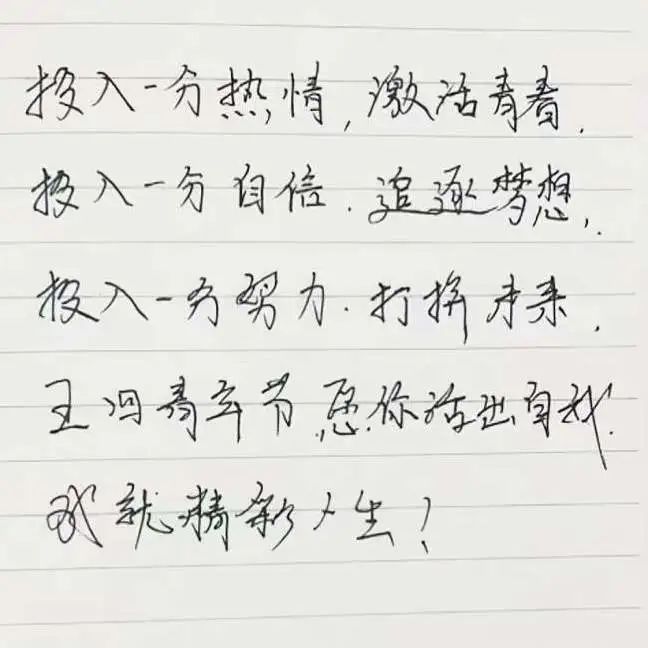 投入一分热情,激活青春,
投入一分自信.追逐梦想,
投入一分努力.打拼未来,
五四青年节,愿你活出自我.
成就精彩人生!